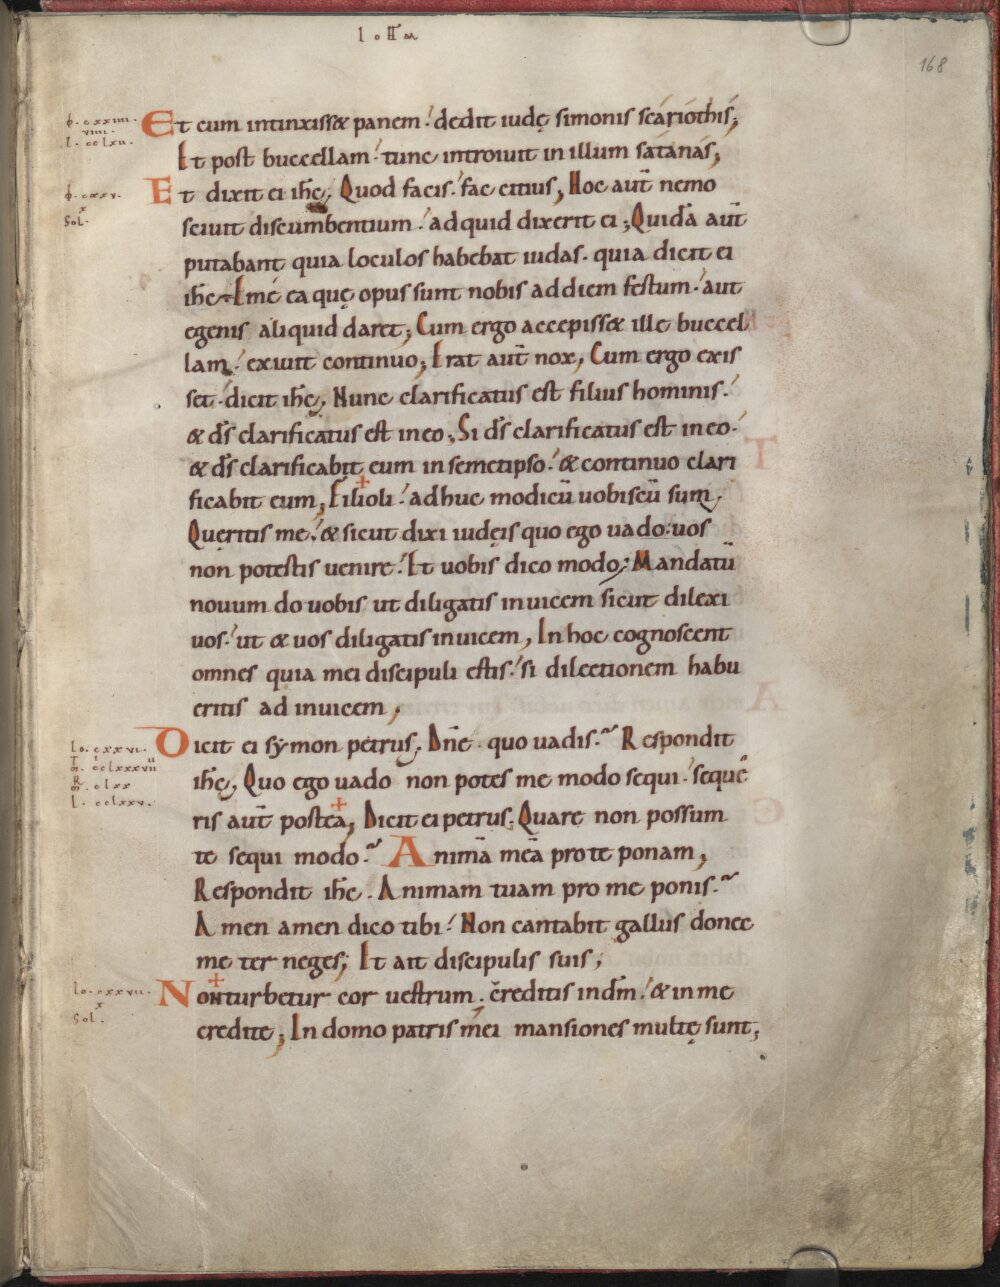 IOHM
168
Et cum intinxiss& panem. dedit iudę simonis scariothis;
Et post buccellam. tunc introiuit in illum satanas;
Et dixit ei ih̅c; Quod facis. fac citius; Hoc aut̅ nemo
sciuit discumbentium. ad quid dixerit ei; Quida̅ aut̅
putabant quia loculos habebat iudas. quia dicit ei
ih̅c. Eme ea quę opus sunt nobis ad diem festum. aut
egenis aliquid daret; Cum ergo accepiss& ille buccel
lam. exiuit continuo; Erat aut̅ nox; Cum ergo exis
set. dicit ih̅c; Nunc clarificatus est filius hominis.
& d̅s clarificatus est in eo; Si d̅s clarificatus est in eo.
& d̅s clarificabit eum in semetipso. & continuo clari
ficabit eum; Filioli. adhuc modicu̅ uobiscu̅ sum.
Queritis me. & sicut dixi iudeis quo ego uado. uos
non potestis uenire. Et uobis dico modo; Mandatu̅
nouum do uobis ut diligatis inuicem sicut dilexi
uos. ut & uos diligatis inuicem; In hoc cognoscent
omnes quia mei discipuli estis. si dilectionem habu
eritis ad inuicem;
Dicit ei symon petrus; Dn̅e quo uadis. Respondit
ih̅c; Quo ego uado non potes me modo sequi. seque
ris aut̅ postea; Dicit ei petrus. Quare non possum
te sequi modo. Anima̅ mea̅ pro te ponam;
Respondit ih̅c. Animam tuam pro me ponis.
Amen amen dico tibi. Non cantabit gallus donec
me ter neges; Et ait discipulis suis;
Non turbetur cor uestrum. creditis in dm̅. & in me
credite; In domo patris mei mansiones multę sunt;